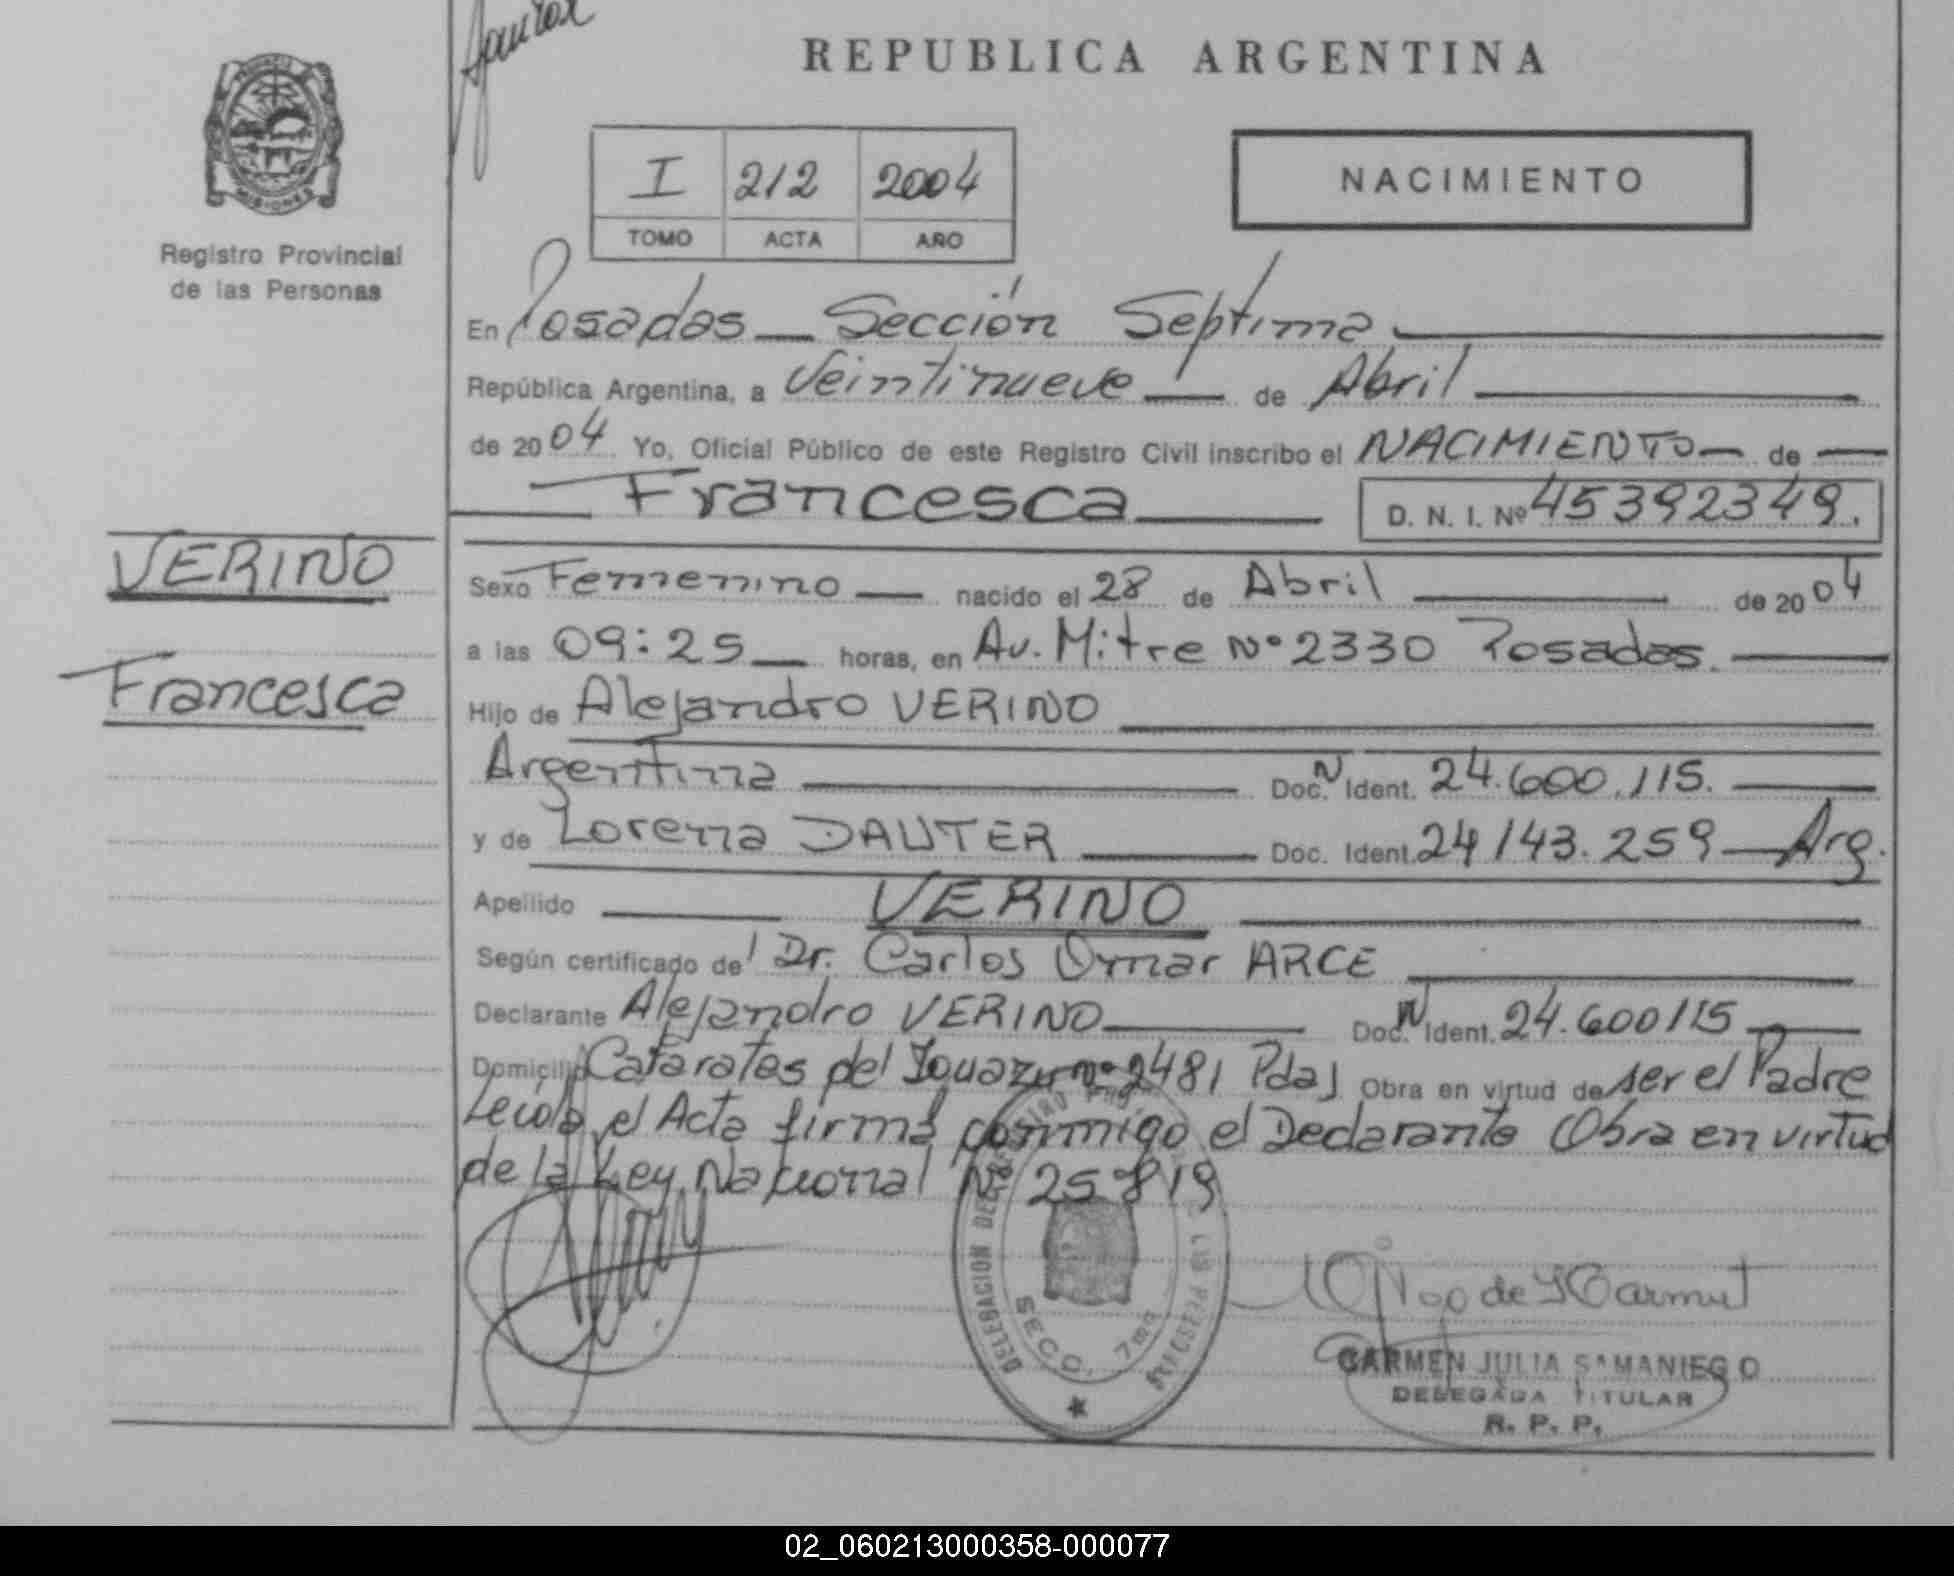 REPUBLICA ARGENTINA
PROVINCIA
MISIONES
Registro Provincial
de las Personas
I 212 2004
TOMO ACTA AÑO
NACIMIENTO
En Posadas Sección Septima
República Argentina, a Veintinueve de Abril
de 2004 Yo, Oficial Público de este Registro Civil inscribo el NACIMIENTO de
Francesca D. N. I. Nº 45392349.
VERINO
Francesca
Sexo Femenino nacido el 28 de Abril de 2004
a las 09:25 horas, en Av. Mitre Nº 2330 Posadas.
Hijo de Alejandro VERINO
Argentina Doc. N Ident. 24.600.115.
y de Lorena DAUTER Doc. Ident. 24143.259 Arg.
Apellido VERINO
Según certificado del Dr. Carlos Omar ARCE
Declarante Alejandro VERINO Doc. N Ident. 24.600115
Domicilio Cataratas del Iguazu nº 2481 Pdas Obra en virtud de ser el Padre
Leida el Acta firma conmigo el Declarante Obra en virtud
de la Ley Nacional Nº 25819
DELEGACION DEL REGISTRO PROV. DE LAS PERSONAS
SECC. 7ma
CARMEN JULIA SAMANIEGO
DELEGADA TITULAR
R. P. P.
02_060213000358-000077